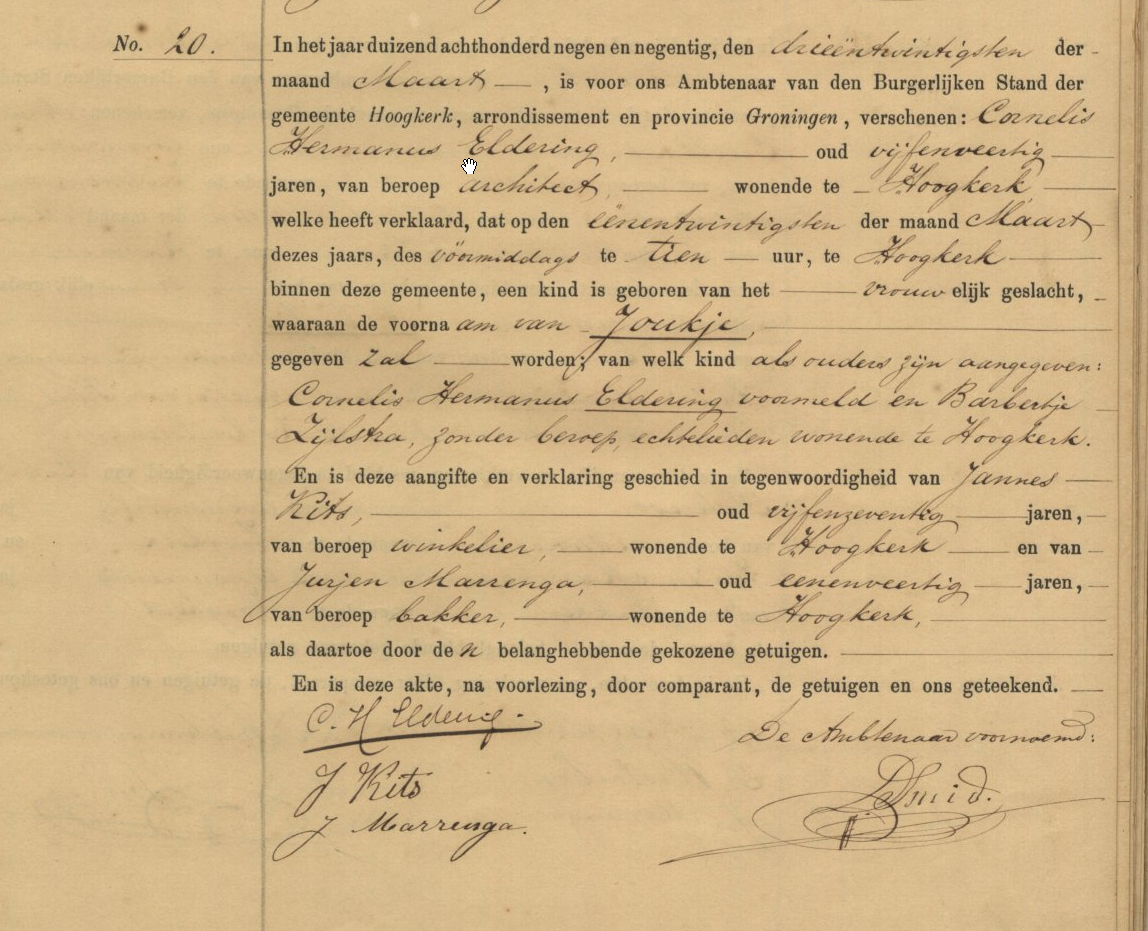 No. 20.
In het jaar duizend achthonderd negen en negentig, den drieëntwintigsten der
maand Maart, is voor ons Ambtenaar van den Burgerlijken Stand der
gemeente Hoogkerk, arrondissement en provincie Groningen, verschenen: Cornelis
Hermanus Eldering, oud vijfenveertig
jaren, van beroep architect, wonende te Hoogkerk
welke heeft verklaard, dat op den eënentwintigsten der maand Maart
dezes jaars, des vóórmiddags te tien uur, te Hoogkerk
binnen deze gemeente, een kind is geboren van het vrouwelijk geslacht,
waaraan de voornaam van Joukje,
gegeven zal worden; van welk kind als ouders zijn aangegeven:
Cornelis Hermanus Eldering voormeld en Barbertje
Zijlstra, zonder beroep, echtelieden wonende te Hoogkerk.
En is deze aangifte en verklaring geschied in tegenwoordigheid van Jannes
Kits, oud vijfenzeventig jaren,
van beroep winkelier, wonende te Hoogkerk en van
Jurjen Marrenga, oud eenenveertig jaren,
van beroep bakker, wonende te Hoogkerk,
als daartoe door den belanghebbende gekozene getuigen.
En is deze akte, na voorlezing, door comparant, de getuigen en ons geteekend.
C. H Eldering.
De Ambtenaar voornoemd:
J Kits
J Marrenga.